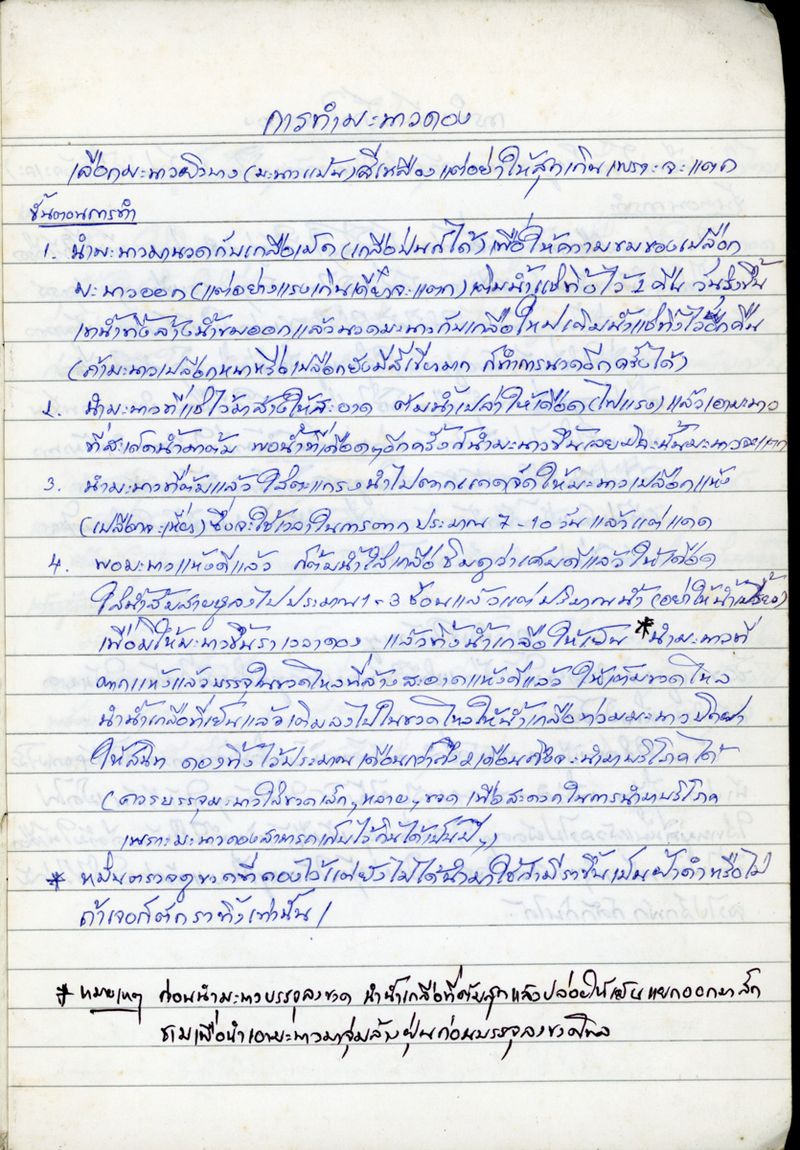 การทำมะนาวดอง
เลือกมะนาวผิวบาง (มะนาวแป้น) สีเหลือง แต่อย่าให้สุกเกิน เพราะจะแตก
ขั้นตอนการทำ
1. นำมะนาวมานวดกับเกลือเม็ด (เกลือป่นก็ได้) เพื่อให้ความขมของเปลือก
มะนาวออก (แต่อย่างแรงเกินเดี๋ยวจะแตก) เติมน้ำแช่ทิ้งไว้ 1 คืน วันรุ่งขึ้น
เทน้ำทิ้งล้างน้ำขมออก แล้วนวดมะนาวกับเกลือใหม่ เติมน้ำแช่ทิ้งไว้อีกคืน
(ถ้ามะนาวเปลือกหนาหรือเปลือกยังมีสีเขียวมาก ก็ทำการนวดอีกครั้งได้)
2. นำมะนาวที่แช่ไว้มาล้างให้สะอาด ต้มน้ำเปล่าให้เดือด (ไฟแรง) แล้วเอามะนาว
ที่สะเด็ดน้ำมาต้ม พอน้ำที่เดือดๆอีกครั้งก็นำมะนาวขึ้นเลย มิฉะนั้นมะนาวจะแตก
3. นำมะนาวที่ต้มแล้ว ใส่ตะแกรงนำไปตากแดดจัดให้มะนาวเปลือกแห้ง
(เปลือกจะเหี่ยว) ซึ่งจะใช้เวลาในการตาก ประมาณ 7-10 วัน แล้วแต่แดด
4. พอมะนาวแห้งดีแล้ว ก็ต้มน้ำใส่เกลือ ชิมดูว่าเค็มดีแล้ว ให้เดือด
ใส่น้ำส้มสายชูลงไปประมาณ 1-3 ช้อน แล้วแต่ปริมาณน้ำ (อย่าให้น้ำเปรี้ยว)
เพื่อมิให้มะนาวขึ้นรา เวลาดอง แล้วทิ้งน้ำเกลือให้เย็น *นำมะนาวที่
ตากแห้งแล้วบรรจุในขวดโหลที่ล้างสะอาดแห้งดีแล้ว ให้เต็มขวดโหล
นำน้ำเกลือที่เย็นแล้วเติมลงไปในขวดโหลให้น้ำเกลือท่วมมะนาว ปิดฝา
ให้สนิท ดองทิ้งไว้ประมาณ เดือนกว่าถึง 2 เดือน จึงจะนำมาบริโภคได้
(ควรบรรจุมะนาวใส่ขวดเล็กๆ หลายๆขวด เพื่อสะดวกในการนำมาบริโภค
เพราะมะนาวดองสามารถเก็บไว้กินได้เป็นปีๆ)
* หมั่นตรวจดูขวดที่ดองไว้แต่ยังไม่ได้นำมาใช้ถ้ามีราขึ้นเป็นฝ้าดำหรือไม่
ถ้าเจอก็ตักราทิ้งเท่านั้น /
* หมายเหตุ ก่อนนำมะนาวบรรจุลงขวด นำน้ำเกลือที่ต้มสุกแล้วปล่อยให้เย็น แยกออกมาสัก
ชามเพื่อนำเอามะนาวมาจุ่มล้างฝุ่นก่อนบรรจุลงขวดโหล